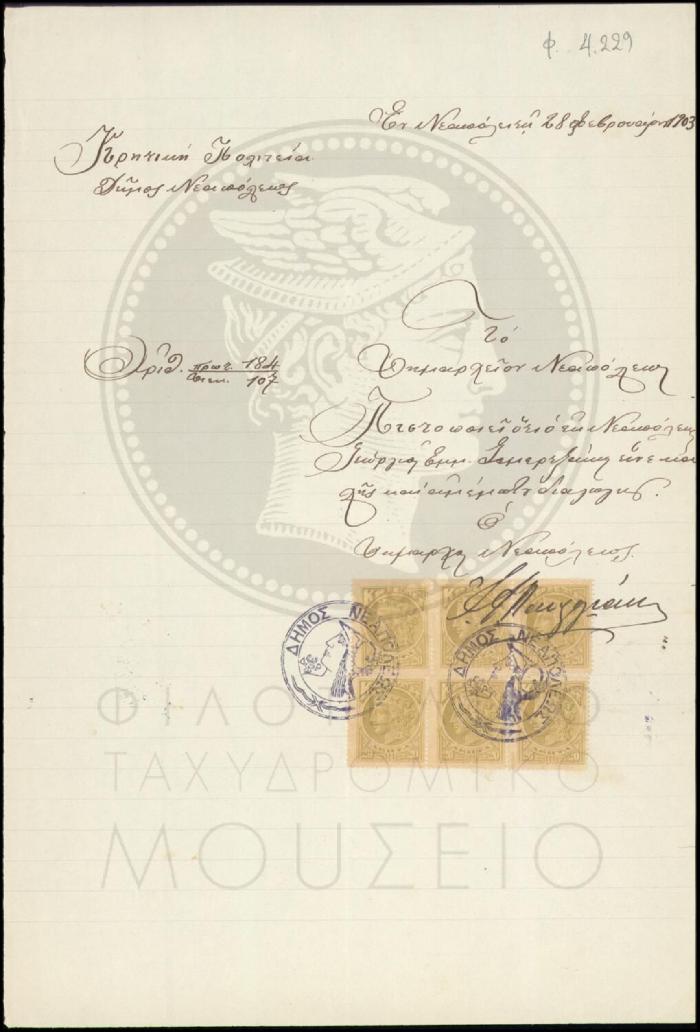 φ. 4.229
Ἐν Νεαπόλει τῇ 28 Φεβρουαρίου 1903
Κρητική Πολιτεία
Δῆμος Νεαπόλεως
Ἀριθ. πρωτ. 184
διεκ. 107
Τό
Δημαρχεῖον Νεαπόλεως
Πιστοποιεῖ ὅτι ὁ ἐκ Νεαπόλεως
Γεώργιος Ἐμμ. εἶνε κα
λῆς καί ἀμέμπτου διαγωγῆς.
Ὁ
Δήμαρχος Νεαπόλεως
ΔΗΜΟΣ ΝΕΑΠΟΛΕΩΣ
ΔΗΜΟΣ ΝΕΑΠΟΛΕΩΣ
ΦΙΛΟΤΕΛΙΚΟ
ΤΑΧΥΔΡΟΜΙΚΟ
ΜΟΥΣΕΙΟ